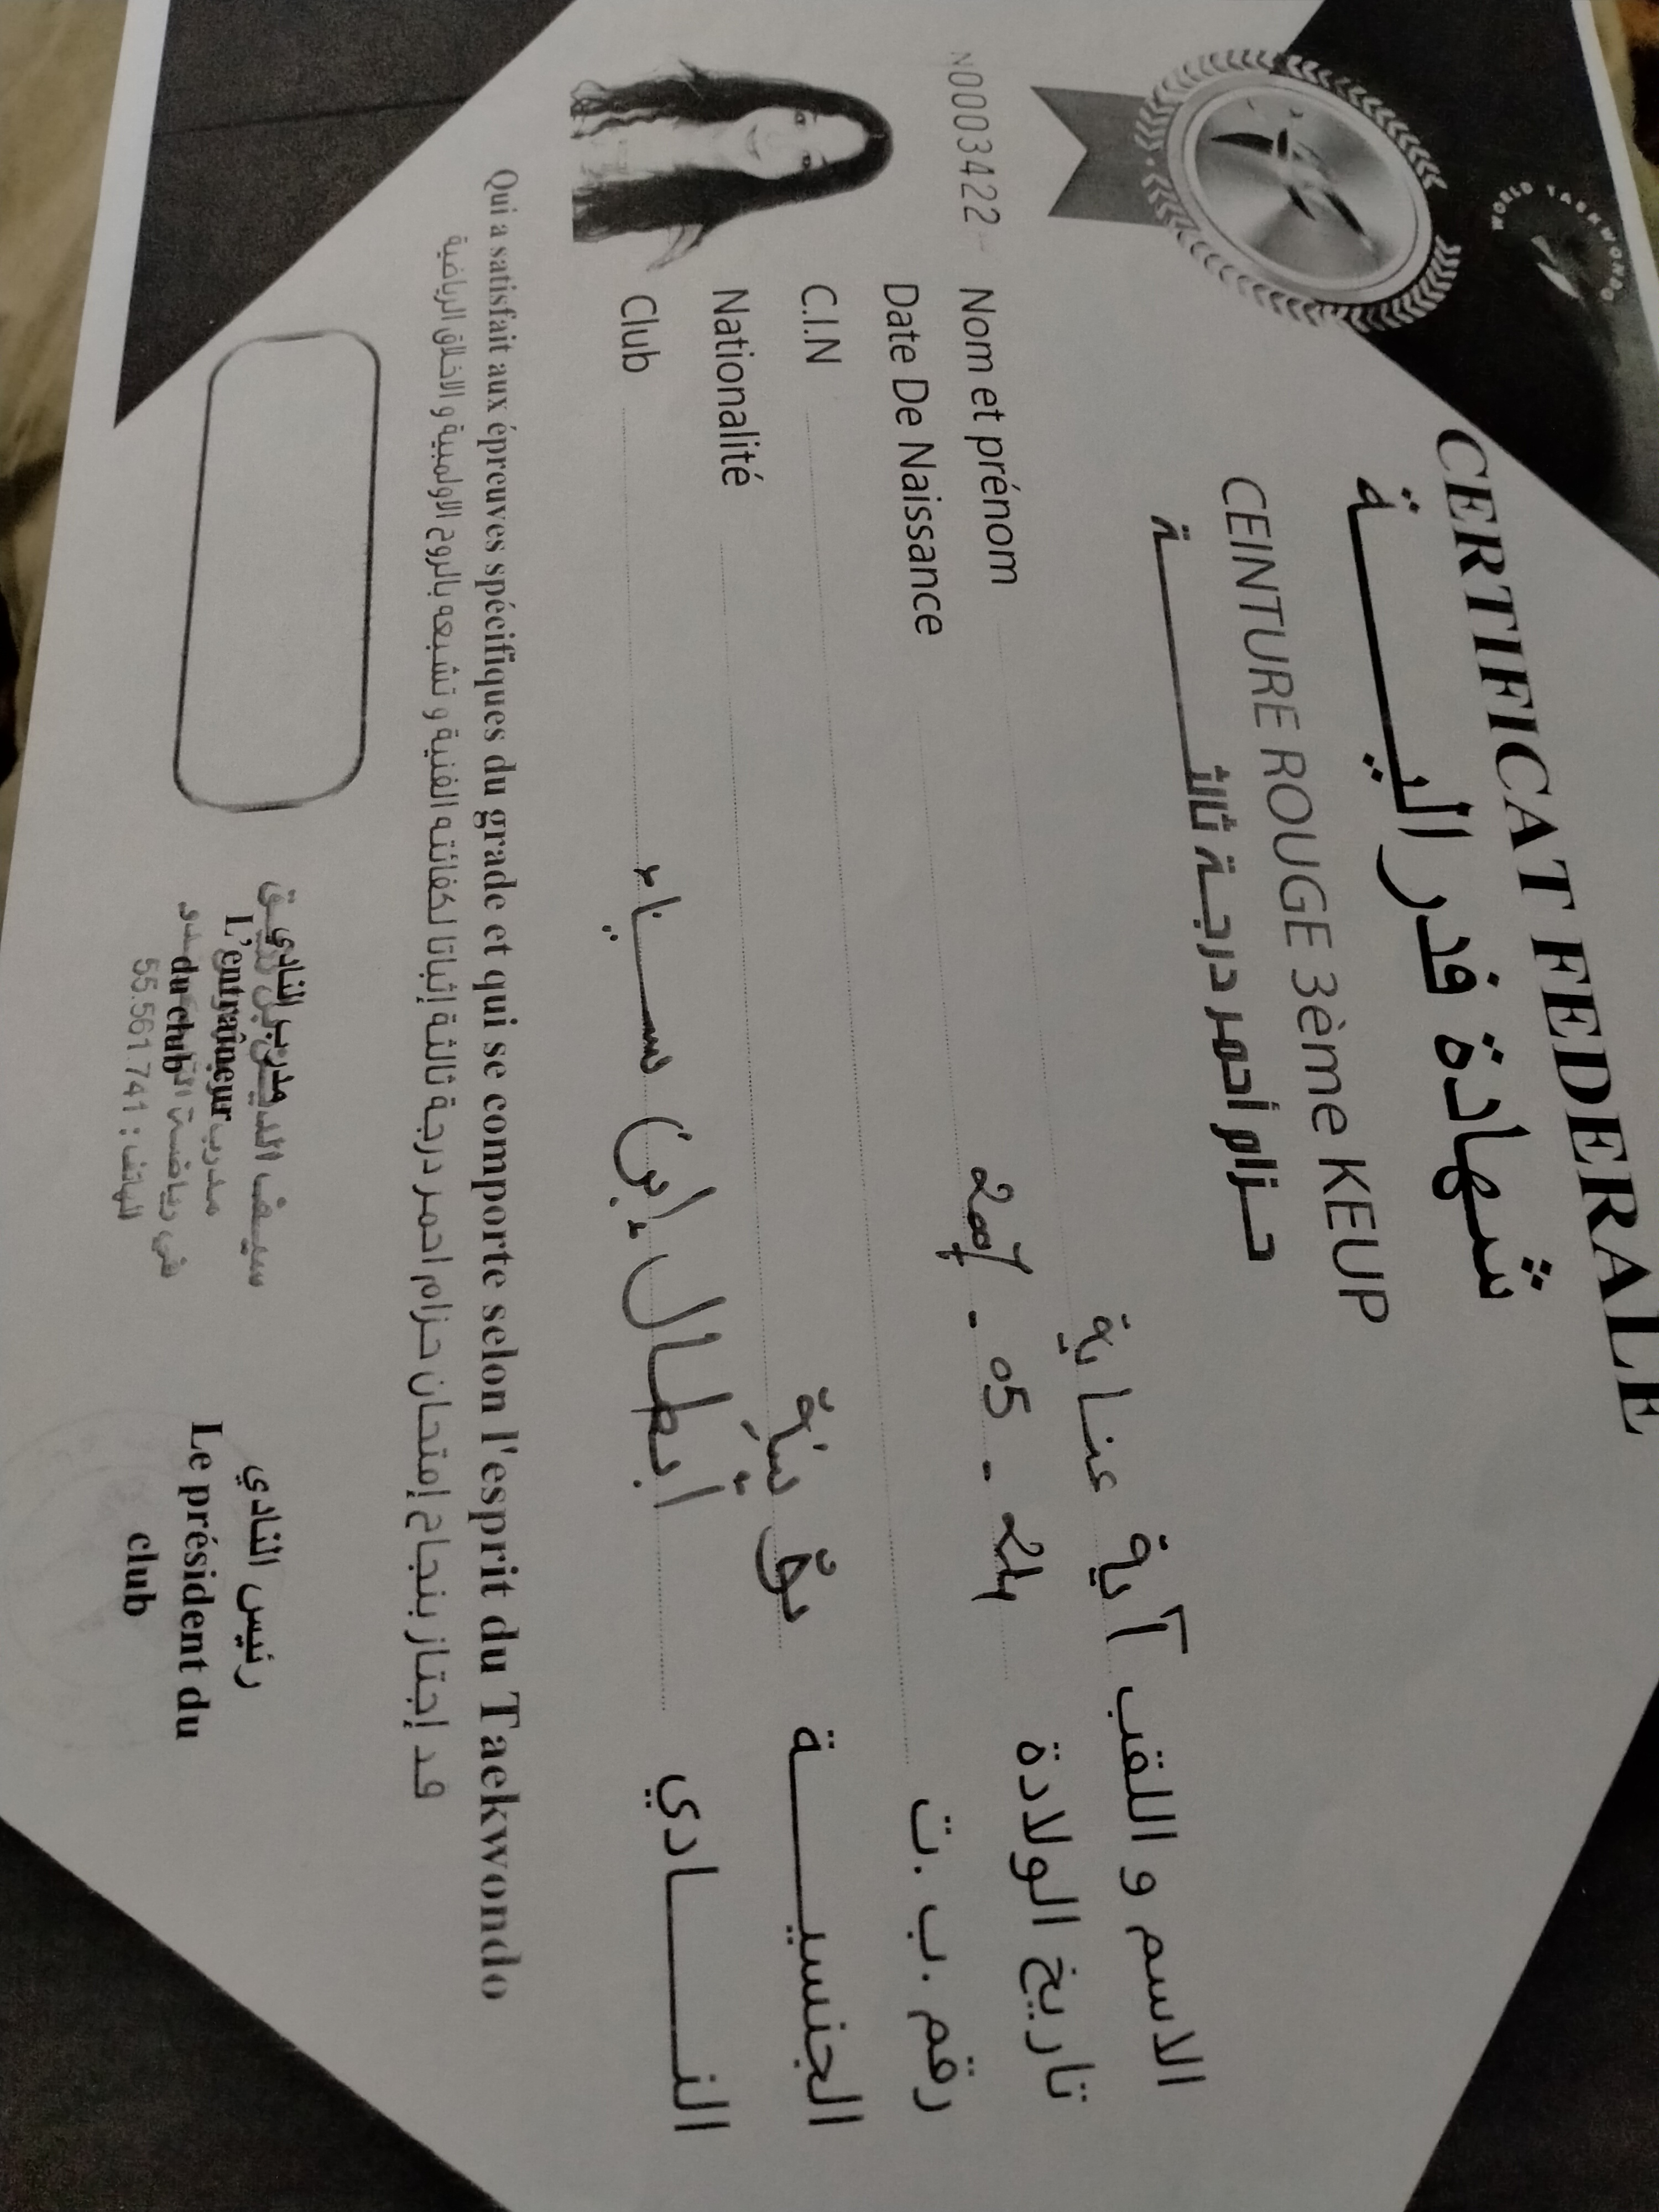 WORLD TAEKWONDO
CERTIFICAT FEDERALE
شهادة فدراليـــــة
CEINTURE ROUGE 3ème KEUP
حزام أحمر درجة ثالثـــــة
N0003422
Nom et prénom آية عناية الاسم و اللقب
Date De Naissance 24 - 05 - تاريخ الولادة
C.I.N رقم .ب .ت
Nationalité تونسية الجنسيـــــة
Club أبطال إبن سيناء النـــــادي
Qui a satisfait aux épreuves spécifiques du grade et qui se comporte selon l'esprit du Taekwondo
قد إجتاز بنجاح إمتحان حزام احمر درجة ثالثة إثباتا لكفائته الفنية و تشبعه بالروح الاولمبية و الاخلاق الرياضية
مدرب النادي
L'entraîneur
du club
سيف الدين بن
مدرب
في رياضة
الهاتف : 55.561 741
رئيس النادي
Le président du
club